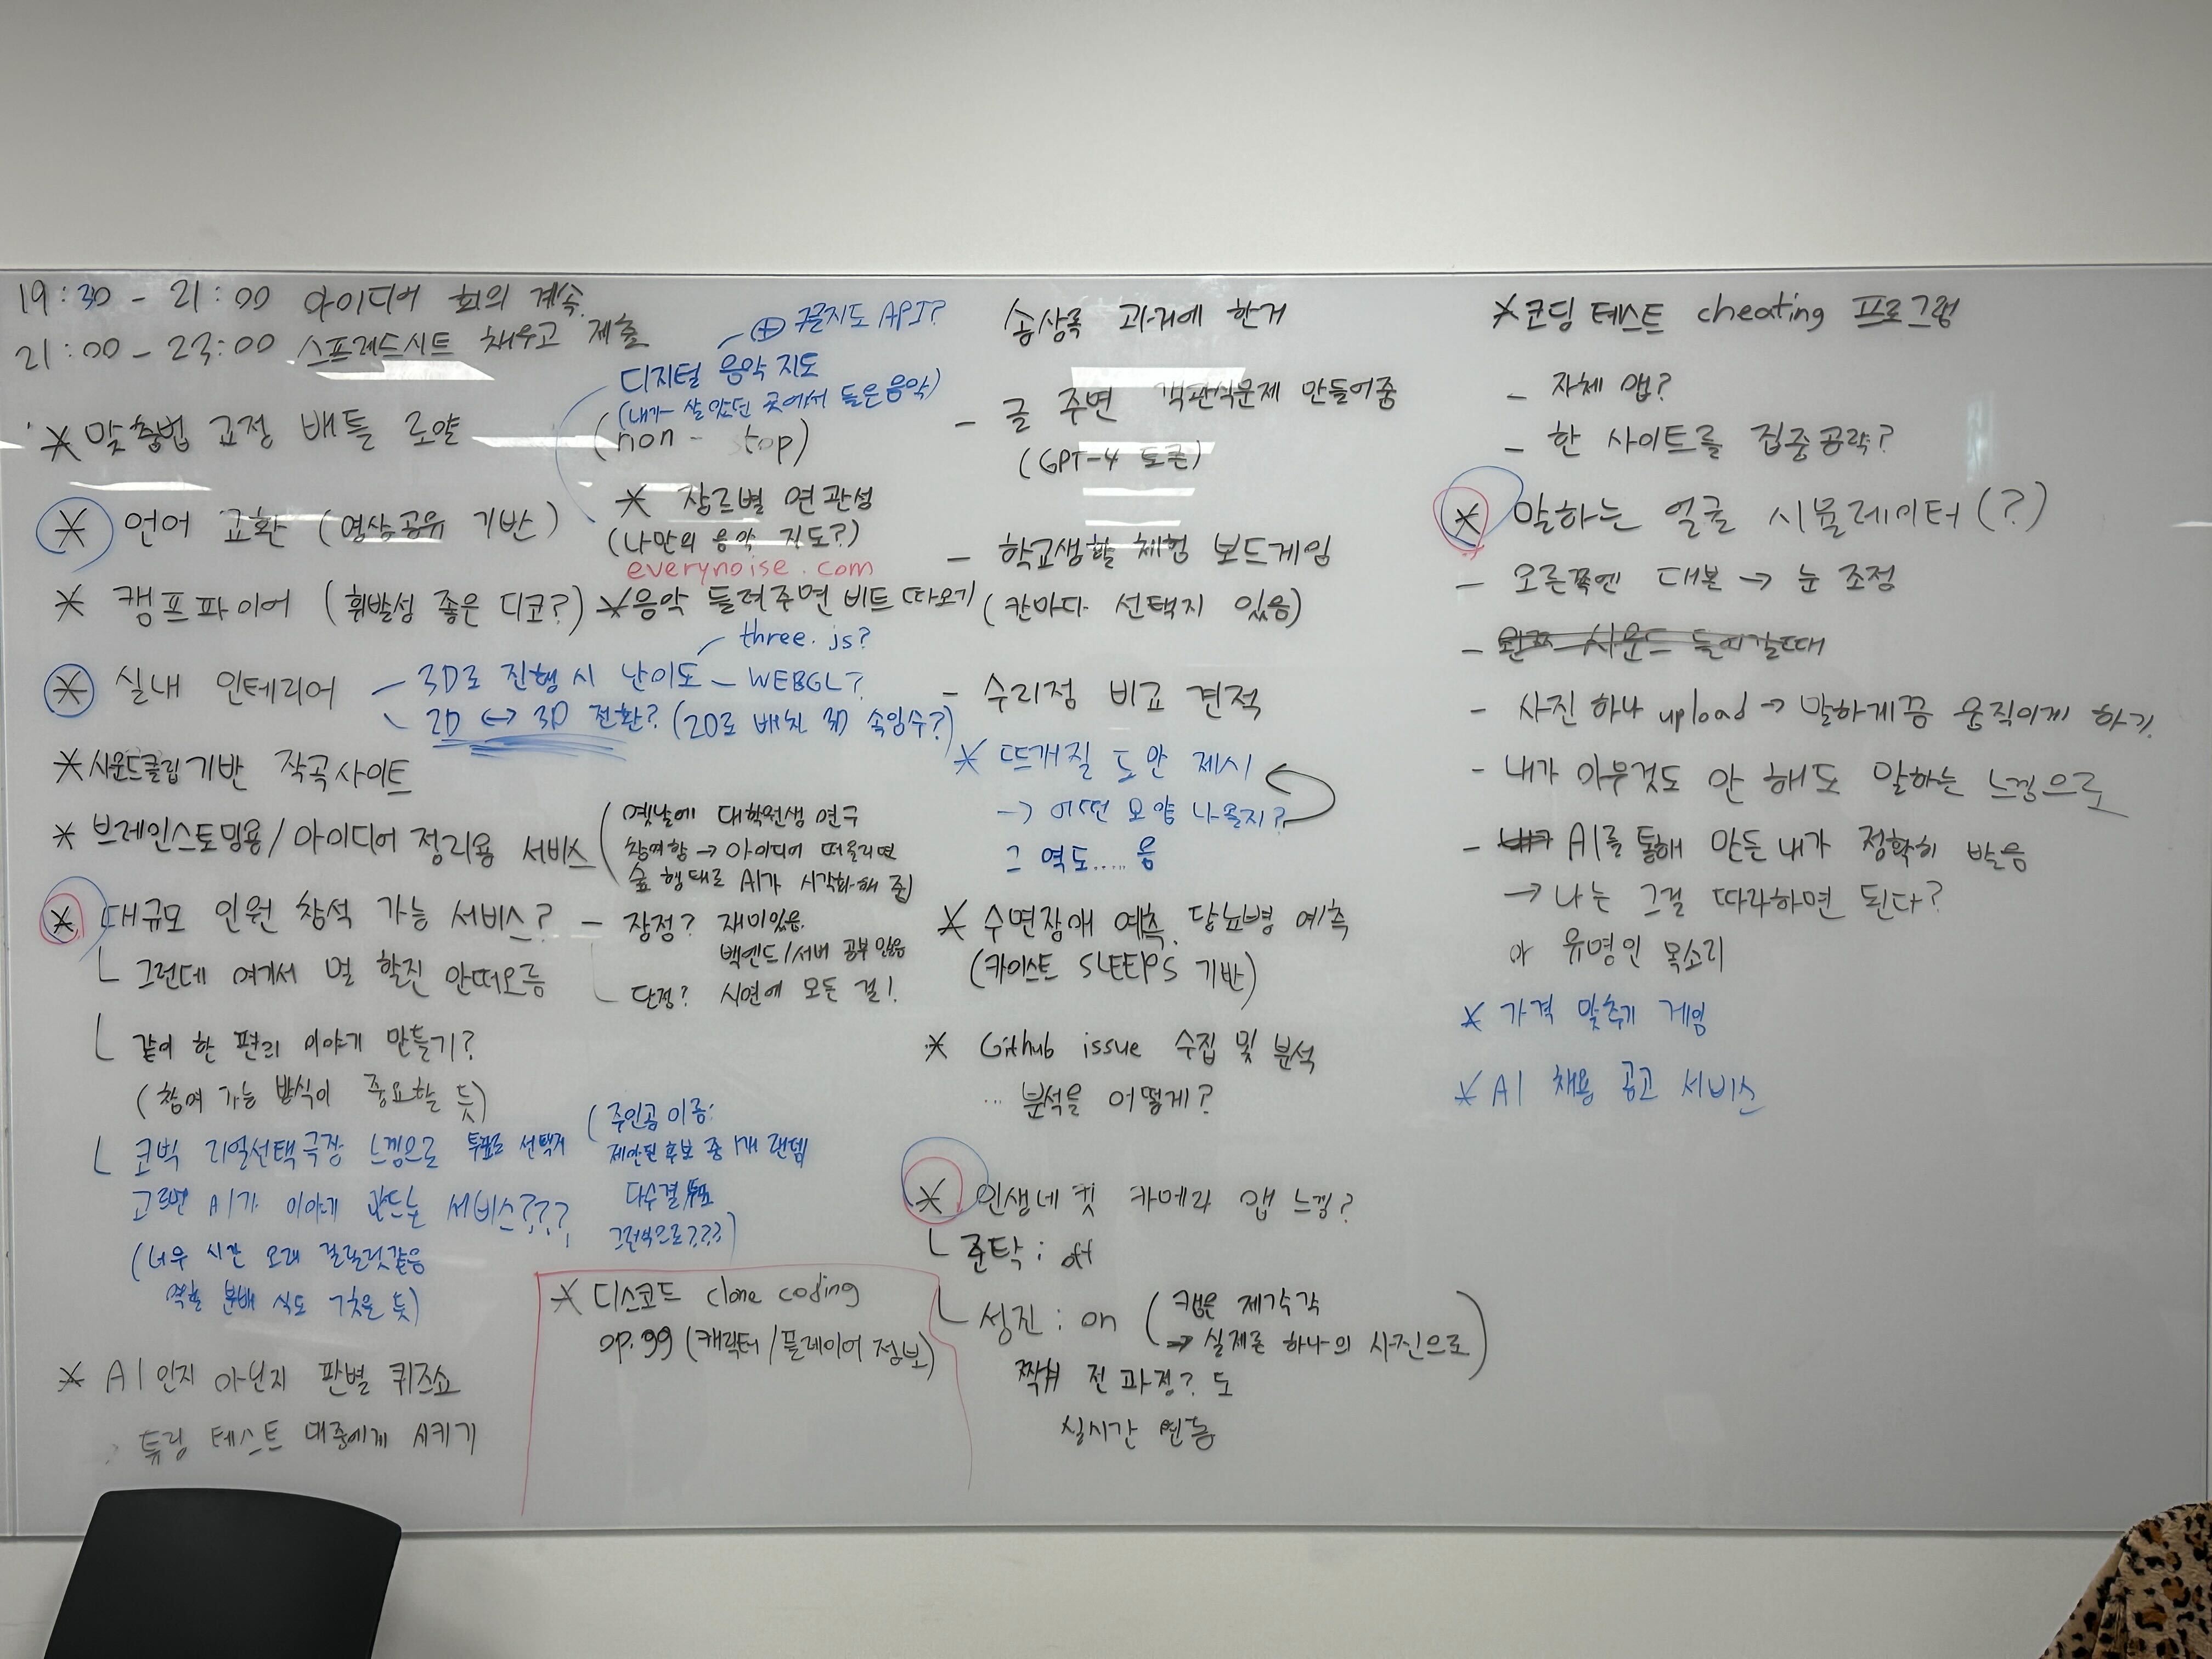 19:30 - 21:00 아이디어 회의 계속.
21:00 - 23:00 스프레드시트 채우고 제출
* 맞춤법 교정 배틀 로얄
* 언어 교환 (영상공유 기반)
* 캠프파이어 (휘발성 좋은 디코?)
* 실내 인테리어
- 3D로 진행 시 난이도 - WEBGL?
three.js?
- 2D ↔ 3D 전환? (2D로 배치 3D 속임수?)
* 사운드클립기반 작곡사이트
* 브레인스토밍용/아이디어 정리용 서비스
(옛날에 대학원생 연구
참여함 → 아이디어 떠올리면
숲 형태로 AI가 시각화해 줌)
* 대규모 인원 참석 가능 서비스?
- 장점? 재미있음.
백엔드/서버 공부 있음
단점? 시연에 모든 걸!
└ 그런데 여기서 뭘 할진 안떠오름
└ 같이 한 편의 이야기 만들기?
(참여 가능 방식이 중요할 듯)
└ 코빅 리얼선택극장 느낌으로 투표로 선택지
고르면 AI가 이야기 만드는 서비스???,
(너무 시간 오래 걸릴것같음
역할 분배 식도 괜찮은 듯)
(주인공 이름:
제안된 후보 중 1개 랜덤
다수결 투표
그런식으로???)
* AI인지 아닌지 판별 퀴즈쇼
튜링 테스트 대중에게 시키기
⊕ 구글지도 API?
디지털 음악 지도
(내가 살았던 곳에서 들은 음악)
(non-stop)
* 장르별 연관성
(나만의 음악 지도?)
everynoise.com
* 음악 들려주면 비트 따오기
* 디스코드 clone coding
op.gg (캐릭터/플레이어 정보)
송상록 과거에 한거
- 글 주면 객관식문제 만들어줌
(GPT-4 토큰)
- 학교생활 체험 보드게임
(칸마다 선택지 있음)
- 수리점 비교 견적
* 뜨개질 도안 제시
→ 어떤 모양 나올지?
그 역도..... 응
* 수면장애 예측, 당뇨병 예측
(카이스트 SLEEPS 기반)
* Github issue 수집 및 분석
... 분석을 어떻게?
* 인생네컷 카메라 앱 느낌?
└ 준탁 : off
└ 성진 : on (캠은 제각각
→ 실제론 하나의 사진으로)
찍기 전 과정? 도
실시간 연동
* 코딩테스트 cheating 프로그램
- 자체 앱?
- 한 사이트를 집중공략?
* 말하는 얼굴 시뮬레이터(?)
- 오른쪽엔 대본 → 눈 조정
- 왼쪽 사운드 들어갈때
- 사진 하나 upload → 말하게끔 움직이게 하기.
- 내가 아무것도 안 해도 말하는 느낌으로
- AI를 통해 만든 내가 정확히 발음
→ 나는 그걸 따라하면 된다?
유명인 목소리
* 가격 맞추기 게임
* AI 채용 공고 서비스